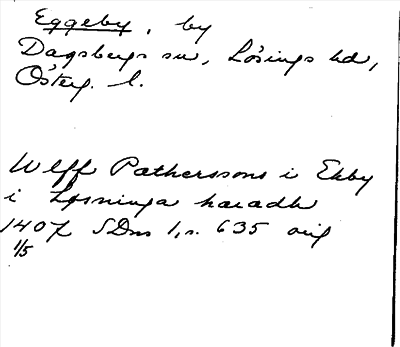 Eggeby, by
Dagsbergs sn, Lösings hd,
Österg. l.
Wlff Patherssons i Ekby
i Løsninga haradh
1407 SDns 1, s. 635 orig
1/5